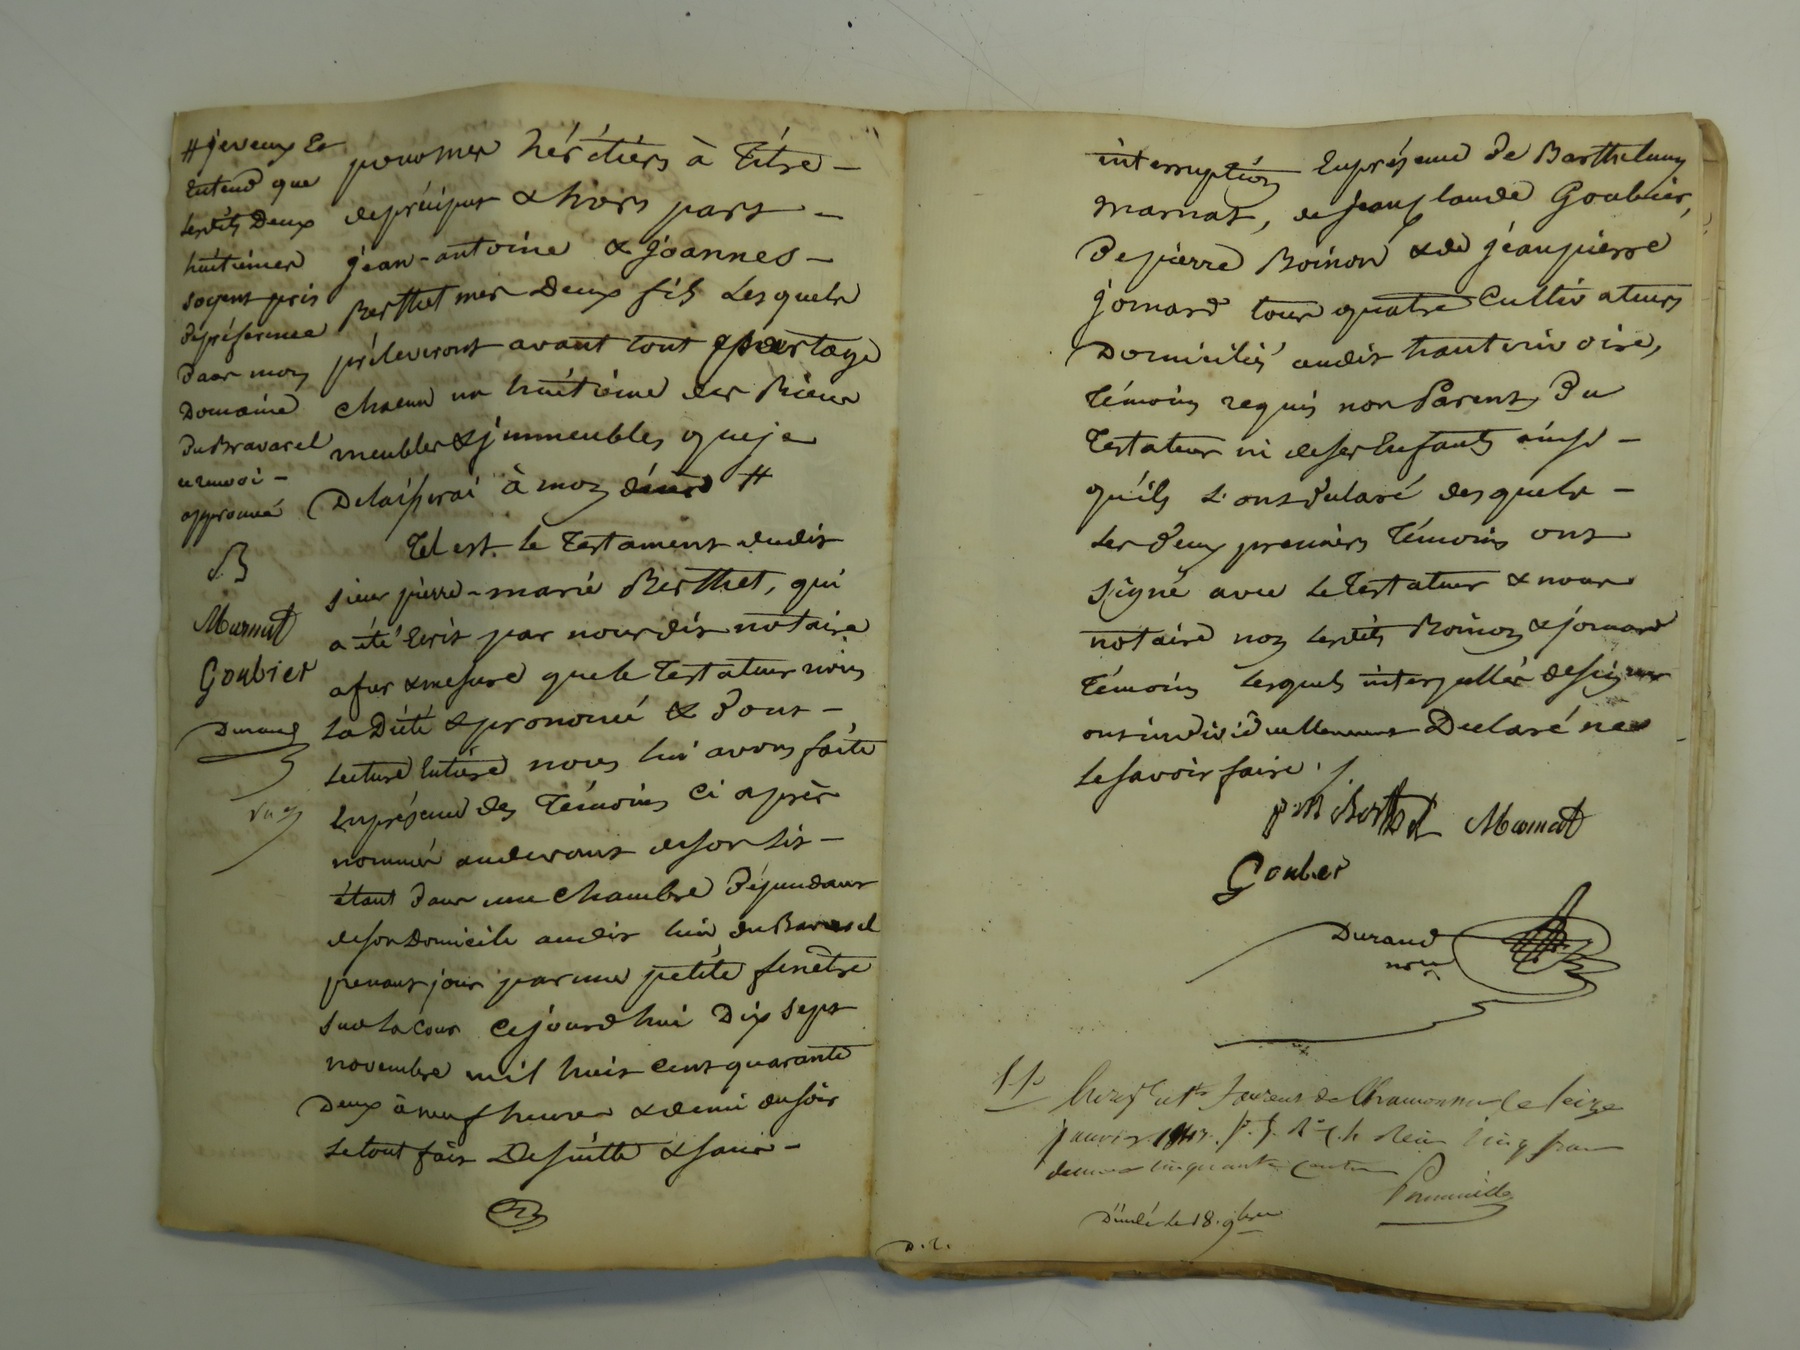 # je veux &
entend que
lesdits deux
huitièmes
soyent pris
dépréférence
dans mon
Domaine
du Bravarel
renvoi -
approuvé
B
Marnat
Goubier
Durand
nommer héritiers à titre -
depréciput & hors part -
jean-antoine & Joannes -
Berthet mes deux fils lesquels
préleveront avant tout partage
chacun un huitième des Biens
meubles & immeubles que je
Delaisserai à mon décès #
Tel est le testament dudit
sieur pierre-marie Berthet, qui
a été Ecrit par nous dit notaire
a fur & mesure que le testateur nous
la Dicté & prononcé & dont -
lecture Entière nous lui avons faite
En présence des témoins ci après
nommés audevant de son lit -
étant dans une chambre dépendant
de son Domicile audit lieu du
prenant jour par une petite fenêtre
sur la cour cejourd'hui Dix sept
novembre mil huit cent quarante
Deux à neuf heures & demi du soir
le tout fait De suitte & sans -
interruption En présence de Barthelemy
Marnat, de Jean Claude Goubier,
De pierre Boinon & de jean pierre
jomard tous quatre Cultivateurs
Domiciliés audit hauterivoire,
témoins requis non Parents Du
testateur ni de ses Enfants ainsi -
qu'ils l'ont déclaré desquels -
les deux premiers témoins ont
signé avec le testateur & nous
notaire non lesdits Boinon & jomard
témoins lesquels interpellés de signer
ont individuellement Déclaré ne
le savoir faire ./.
p. m Berthet Marnat
Goubier
Durand
nore
St Laurent de Chamousset le seize
janvier
cinquante centimes
le 18. 9bre
D. r.